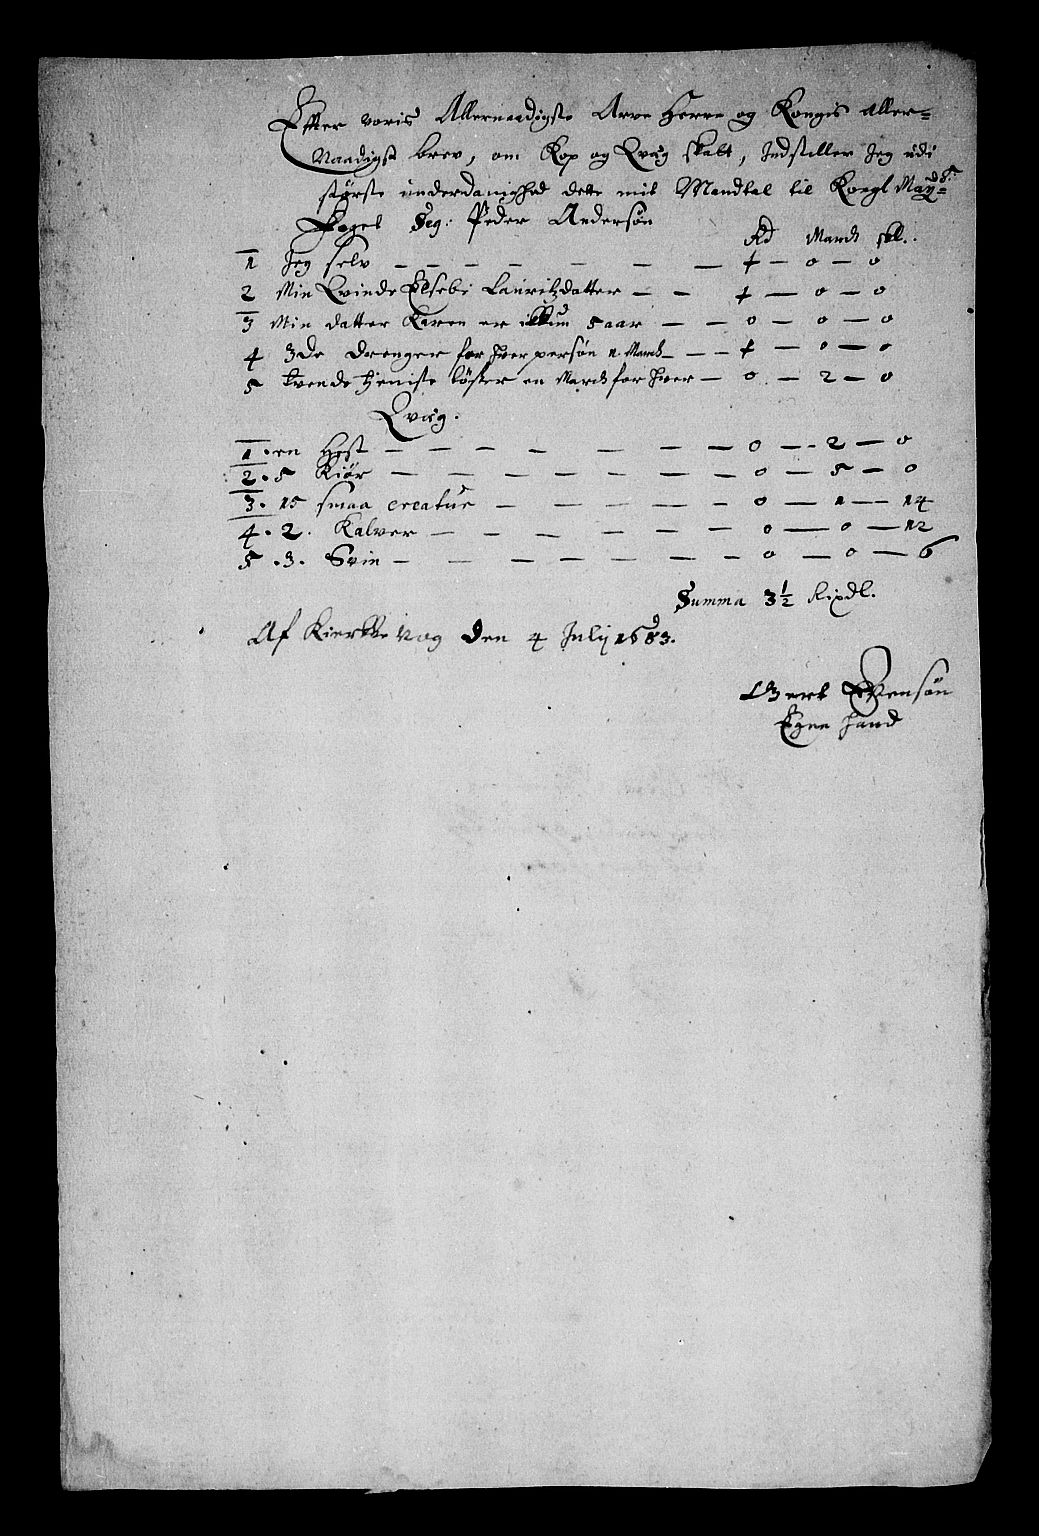 Efter voris Allernaadigste Arve Herre og Kongis aller=
Naadigst brev, om Kop og Qvæg skatt, Indstiller Jeg udi
største underdanighed dette mit Mandtal til Kongl May=ds:
Foget Seg: Peder Andersøn
Rd Marck skl.
1 Jeg selv — — — — — — — + — 0 — 0
2 Min Qvinde Elsebe Lauritzdatter — — + — 0 — 0
3 Min datter Karen er ikkun 5 aar — — 0 — 0 — 0
4 3de drenger for hver persøn 2 Marck — — + — 0 — 0
5 tvende tieniste tøsser en Marck for hver — 0 — 2 — 0
Qvæg.
1 . en Hest — — — — — — — 0 — 2 — 0
2 . 5 Kiør — — — — — — — 0 — 5 — 0
3 . 15 smaa creatur — — — — — 0 — 1 — 14
4 . 2 . Kalver — — — — — — 0 — 0 — 12
5 . 3 . Svin — — — — — — — 0 — 0 — 6
Summa 3½ Rixdl.
Af Kierkke Vog den 4 July 1683.
Evensøn
Egen Hand